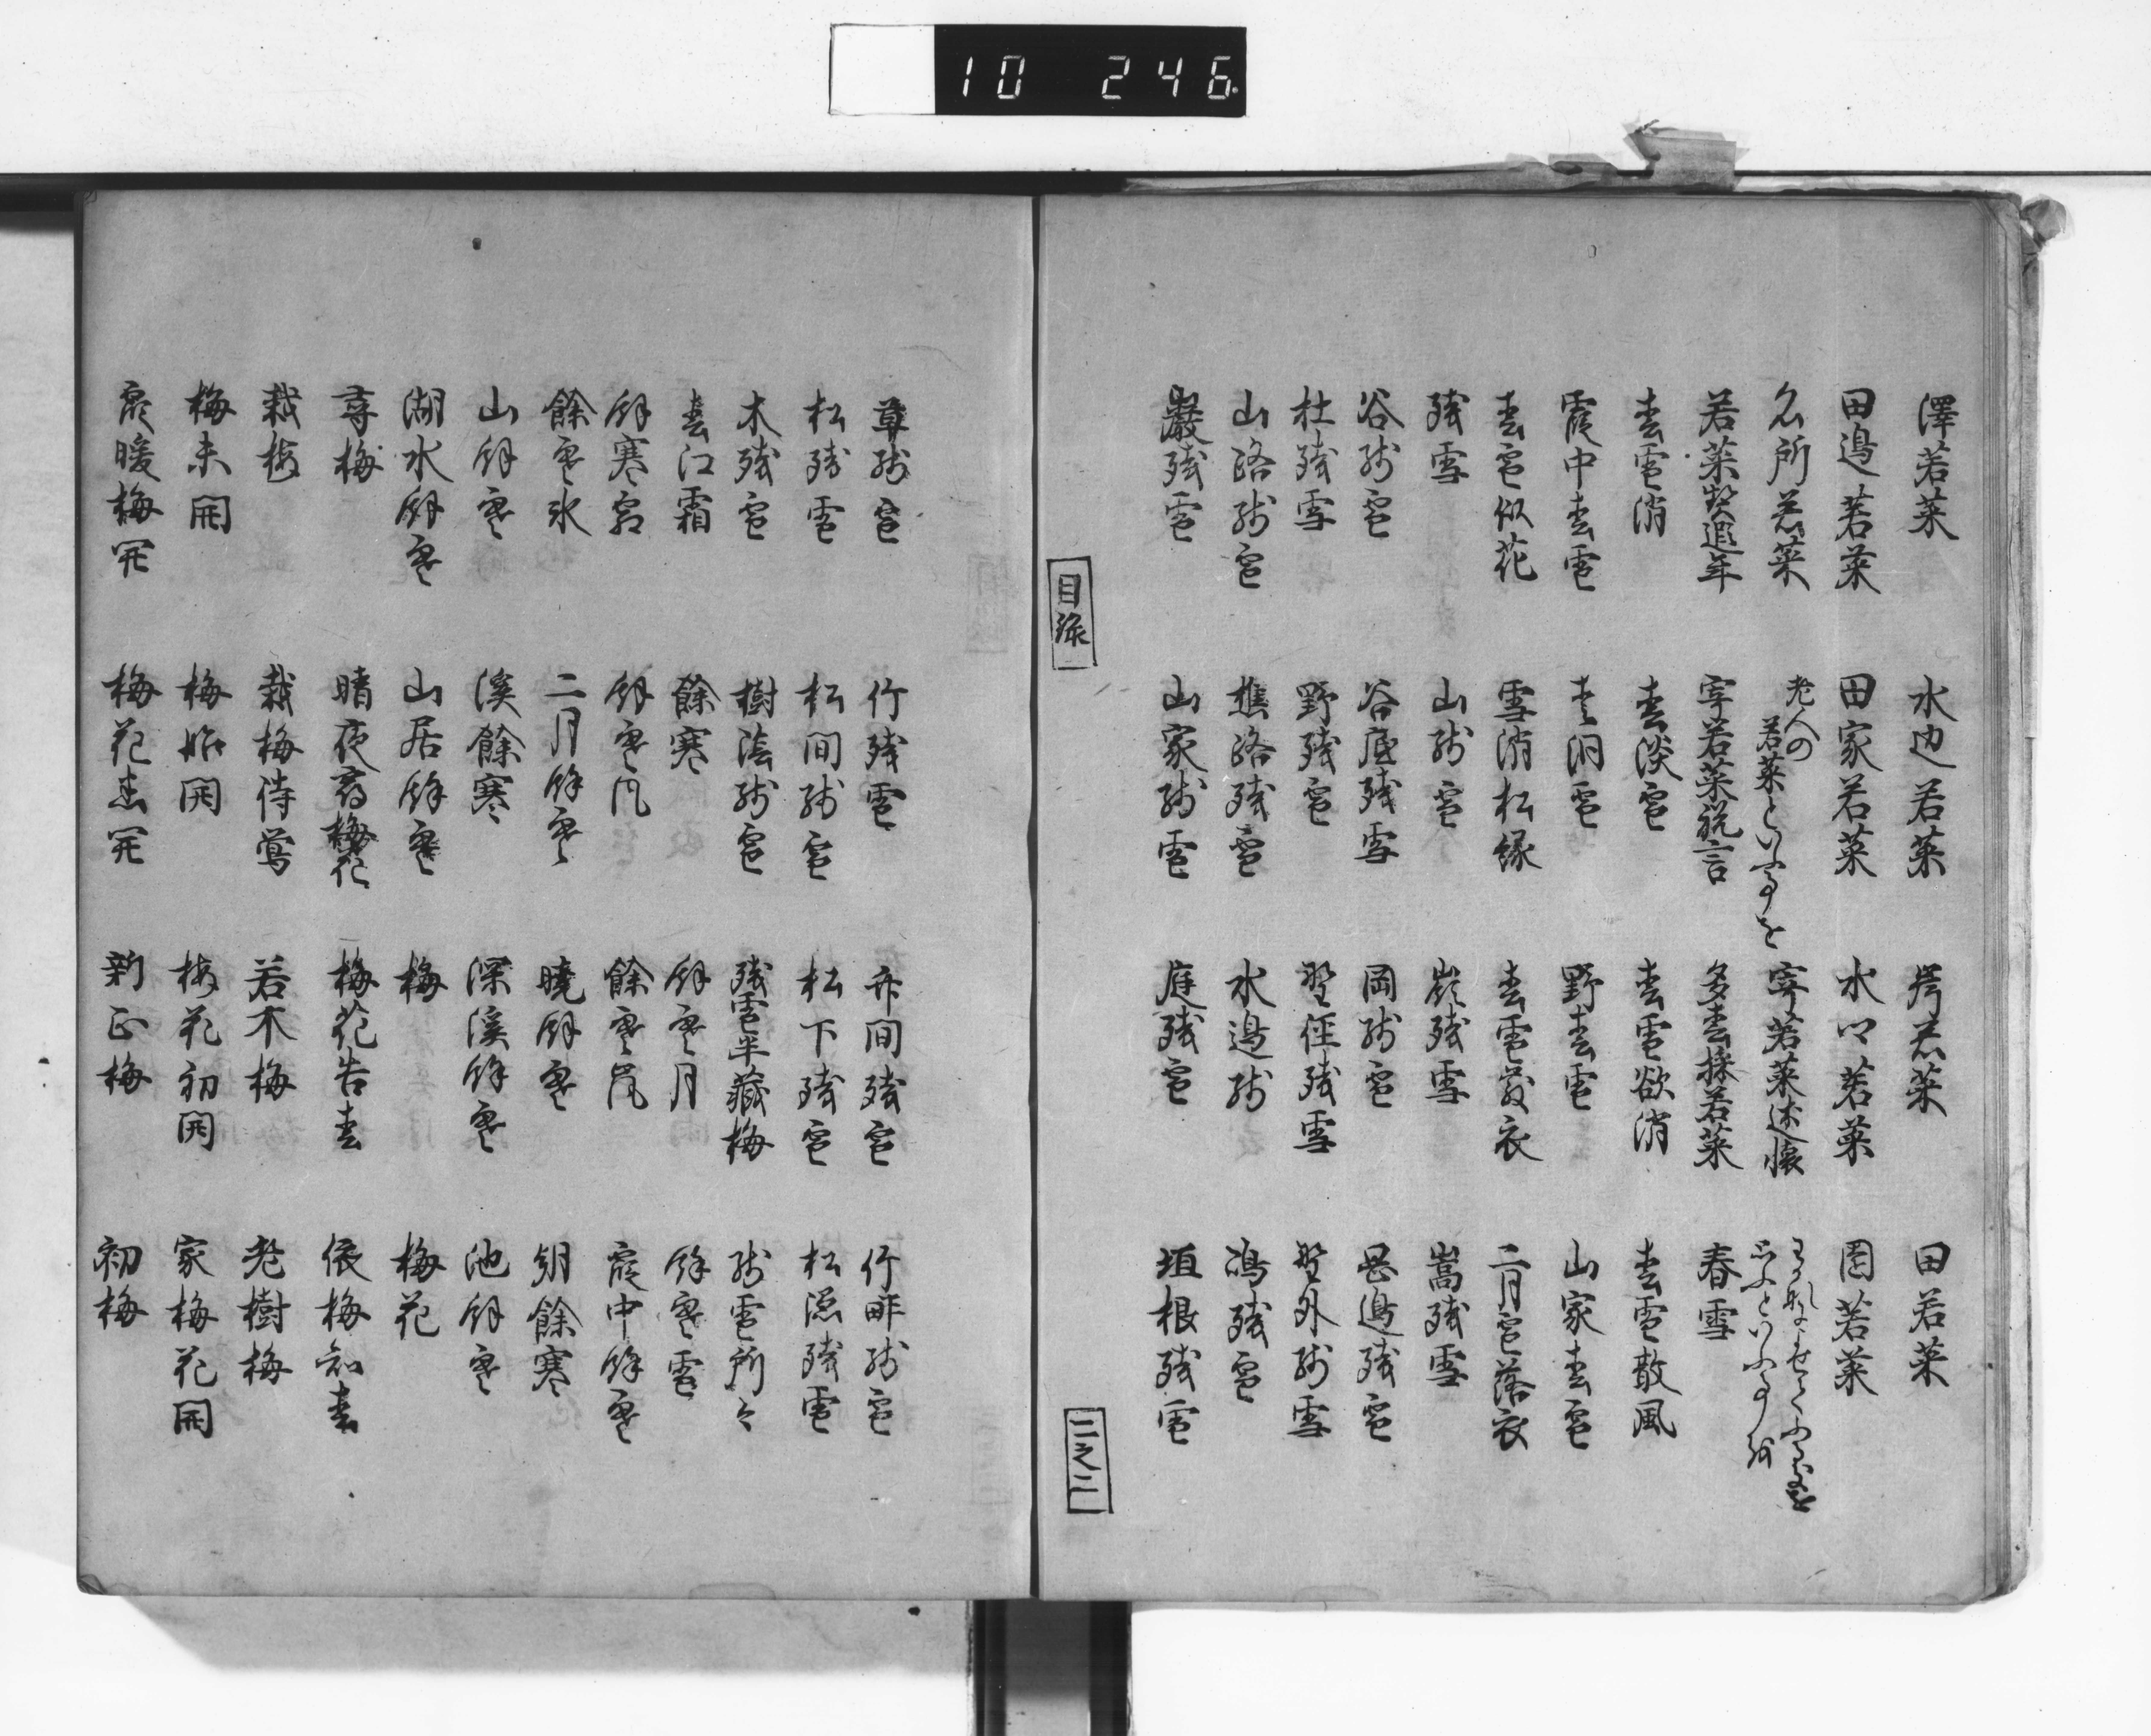 10 246
澤若菜 水辺若菜 岸若菜 田若菜
田邉若菜 田家若菜 水口若菜 園若菜
名所若菜 老人の若菜といふ事を 寄若菜述懐
若菜契遐年 寄若菜祝言 多春採若菜 春雪
春雪消 春淡雪 春雪欲消 春雪散風
霞中春雪 春洞雪 野春雪 山家春雪
春雪似花 雪消松緑 春雪落衣 二月雪落衣
残雪 山残雪 嶺残雪 嵩残雪
谷残雪 谷底残雪 岡残雪 岡邉残雪
杜残雪 野残雪 野径残雪 野外残雪
山路残雪 樵路残雪 水邉残 残雪
巌残雪 山家残雪 庭残雪 垣根残雪
目録
二之二
草残雪 竹残雪 竹間残雪 竹畔残雪
松残雪 松間残雪 松下残雪 松陰残雪
木残雪 樹陰残雪 残雪半蔵梅 残雪所々
春江霜 餘寒 餘寒月 餘寒雪
餘寒霜 餘寒風 餘寒嵐 霞中餘寒
餘寒氷 二月餘寒 暁餘寒 朝餘寒
山餘寒 溪餘寒 深溪餘寒 池餘寒
湖水餘寒 山居餘寒 梅 梅花
尋梅 暗夜尋梅花 梅花告春 依梅知春
栽梅 栽梅待鶯 若木梅 老樹梅
梅未開 梅始開 梅花初開 家梅花開
暖梅開 梅花患開 新正梅 初梅